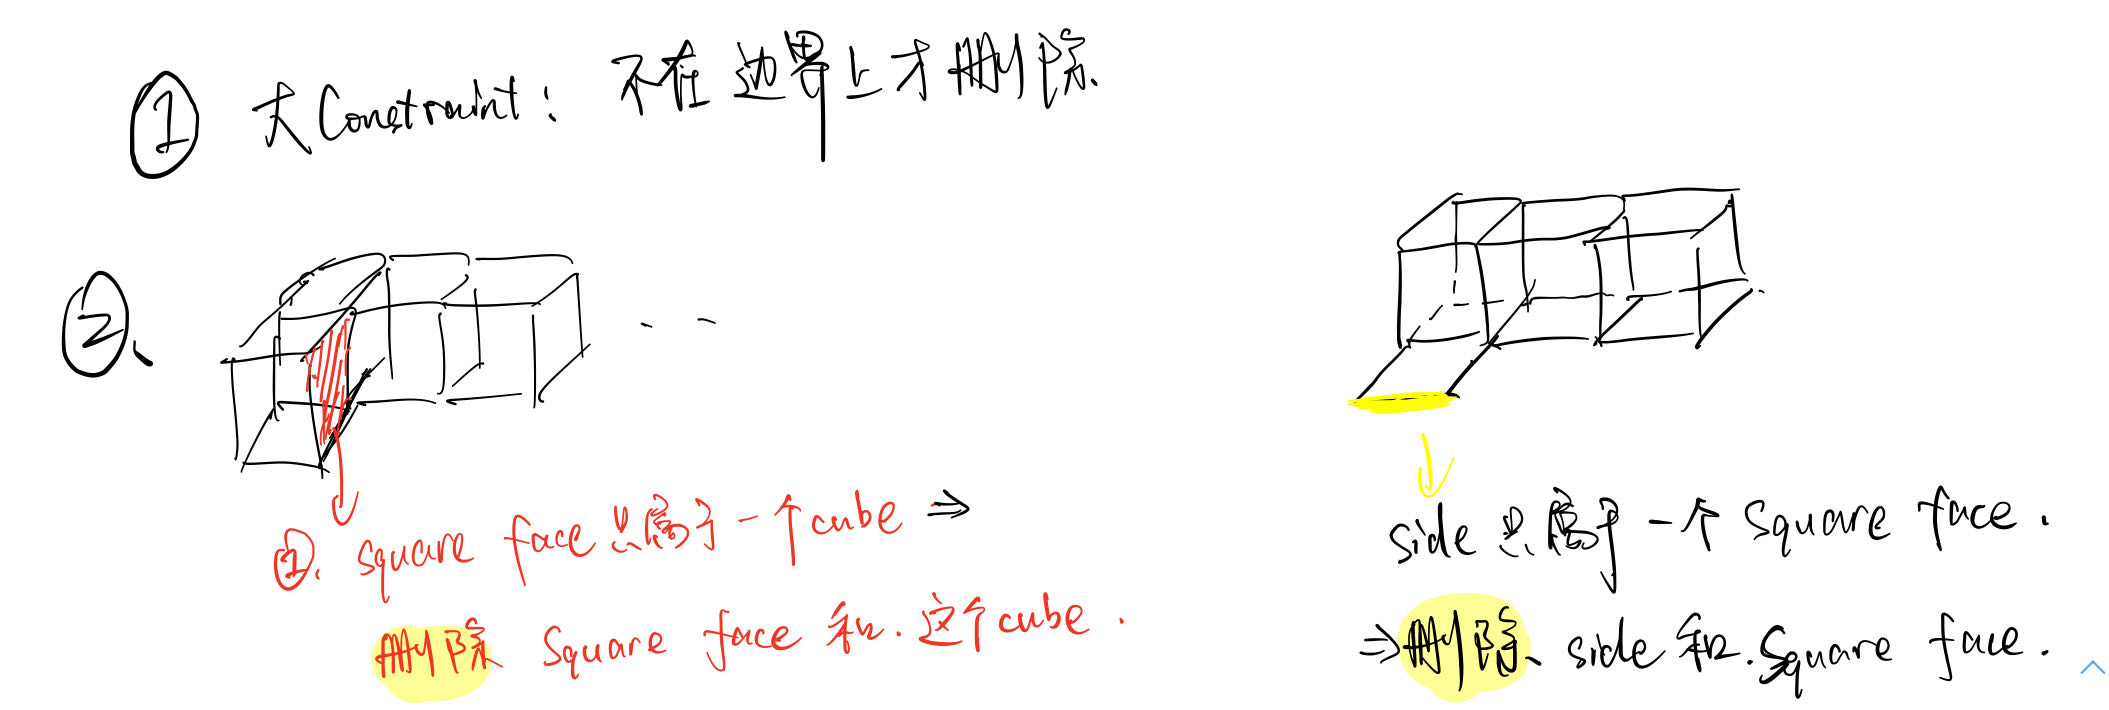 ① 大Constraint: 不在边界上才删除.
②、
①. square face 只属于一个cube ⇒
删除 Square face 和.这个cube.
side 只属于一个 Square face.
⇒删除、side 和.Square face.